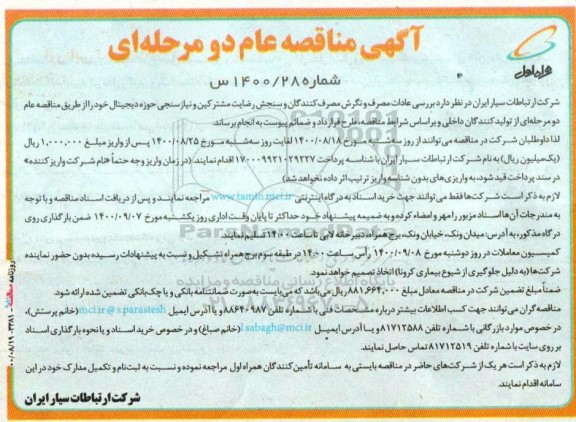 همراه اول
آگهی مناقصه عام دو مرحله‌ای
شماره ۱۴۰۰/۲۸ س
شرکت ارتباطات سیار ایران در نظر دارد بررسی عادات مصرف و نگرش مصرف کنندگان و سنجش رضایت مشترکین و نیازسنجی حوزه دیجیتال خود را از طریق مناقصه عام
دو مرحله‌ای از تولیدکنندگان داخلی و براساس شرایط مناقصه، طرح قرارداد و ضمائم پیوست به انجام برساند.
لذا داوطلبان شرکت در مناقصه می‌توانند از روز سه‌شنبه مورخ ۱۴۰۰/۰۸/۱۸ لغایت روز سه‌شنبه مورخ ۱۴۰۰/۰۸/۲۵ پس از واریز مبلغ ۱,۰۰۰,۰۰۰ ریال
(یک‌میلیون ریال) به نام شرکت ارتباطات سیار ایران با شناسه پرداخت اقدام نمایند. (در زمان واریز وجه حتماً «نام شرکت واریز کننده»
در سند پرداخت قید شود، به واریزی‌های بدون شناسه واریز ترتیب اثر داده نخواهد شد)
لازم به ذکر است شرکت‌ها فقط می‌توانند جهت خرید اسناد به درگاه اینترنتی www.tamin.mci.ir مراجعه نمایند و پس از دریافت اسناد مناقصه و با توجه
به مندرجات آن‌ها اسناد مزبور را مهر و امضاء کرده و به ضمیمه پیشنهاد خود حداکثر تا پایان وقت اداری روز یکشنبه مورخ ۱۴۰۰/۰۹/۰۷ ضمن بارگذاری روی
درگاه مذکور، به آدرس: میدان ونک، خیابان ونک، برج همراه، دبیرخانه لابی تا ساعت ۱۴:۰۰ تسلیم نمایند.
کمیسیون معاملات در روز دوشنبه مورخ ۱۴۰۰/۰۹/۰۸ رأس ساعت ۱۴:۰۰ در طبقه سوم برج همراه تشکیل و نسبت به پیشنهادات رسیده بدون حضور نماینده
شرکت‌ها (به دلیل جلوگیری از شیوع بیماری کرونا) اتخاذ تصمیم خواهد نمود.
ضمناً مبلغ تضمین شرکت در مناقصه معادل مبلغ ۸۸۱,۶۶۴,۰۰۰ ریال می‌باشد که می‌بایست به صورت ضمانتنامه بانکی و یا چک بانکی تضمین شده ارائه شود.
مناقصه‌گران می‌توانند جهت کسب اطلاعات بیشتر درباره مشخصات فنی با شماره تلفن ۸۸۶۴۰۹۸۷ و یا آدرس ایمیل s.parastesh@mci.ir (خانم پرستش)،
در خصوص موارد بازرگانی با شماره تلفن ۸۱۷۱۲۵۸۸ و یا آدرس ایمیل l.sabagh@mci.ir (خانم صباغ) و در خصوص خرید اسناد و یا نحوه بارگذاری اسناد
بر روی سایت با شماره تلفن ۸۱۷۱۲۵۱۹ تماس حاصل نمایند.
لازم به ذکر است هر یک از شرکت‌های حاضر در مناقصه بایستی به سامانه تأمین کنندگان همراه اول مراجعه نموده و نسبت به ثبت‌نام و تکمیل مدارک خود در این
سامانه اقدام نمایند.
شرکت ارتباطات سیار ایران